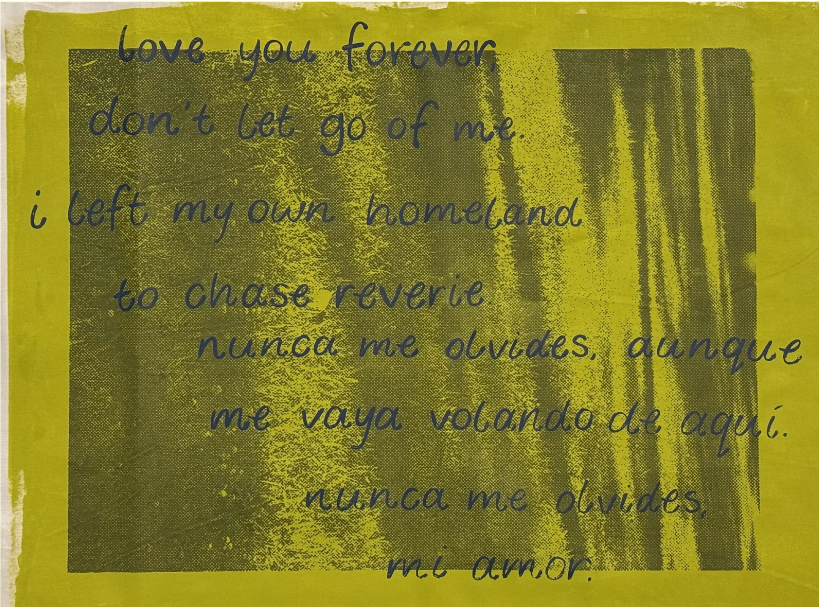 love you forever,
don't let go of me.
i left my own homeland
to chase reverie
nunca me olvides, aunque
me vaya volando de aquí.
nunca me olvides,
mi amor.